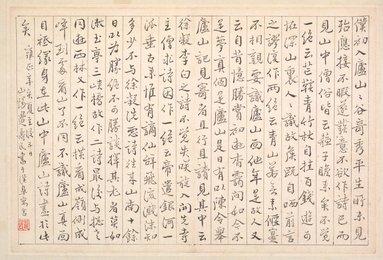 僕初入廬山〻谷奇秀平生所未見
殆應接不暇遂發意不欲作詩已而
見山中僧俗皆云蘇子瞻來矣不覺
一絕云芒鞵青竹杖自挂百錢遊可
怪深山裏人〻識故侯既自哂前言
之謬復作兩絕云青山若無素偃蹇
不相親要識廬山面他年是故人又
云自昔憶勝賞初遊杳靄間如今不是
夢真個是廬山是日有以陳令舉
廬山記見寄者且行且讀見其中云
徐凝李白之詩不覺失咲旋入開先寺
主僧求詩因作一絕云帝遣銀河一
派垂古來惟有謫仙辭飛流濺沫知
多少不與徐凝洗惡詩往來山南十餘
日以為勝絕不可勝談擇其尤者莫如
漱玉亭三峽橋故作二詩最後与摠
同遊西林作一絕云橫看成嶺側成
峰到處看山了不同不識廬山真面
目祗緣身在此山中廬山詩盡於此
矣